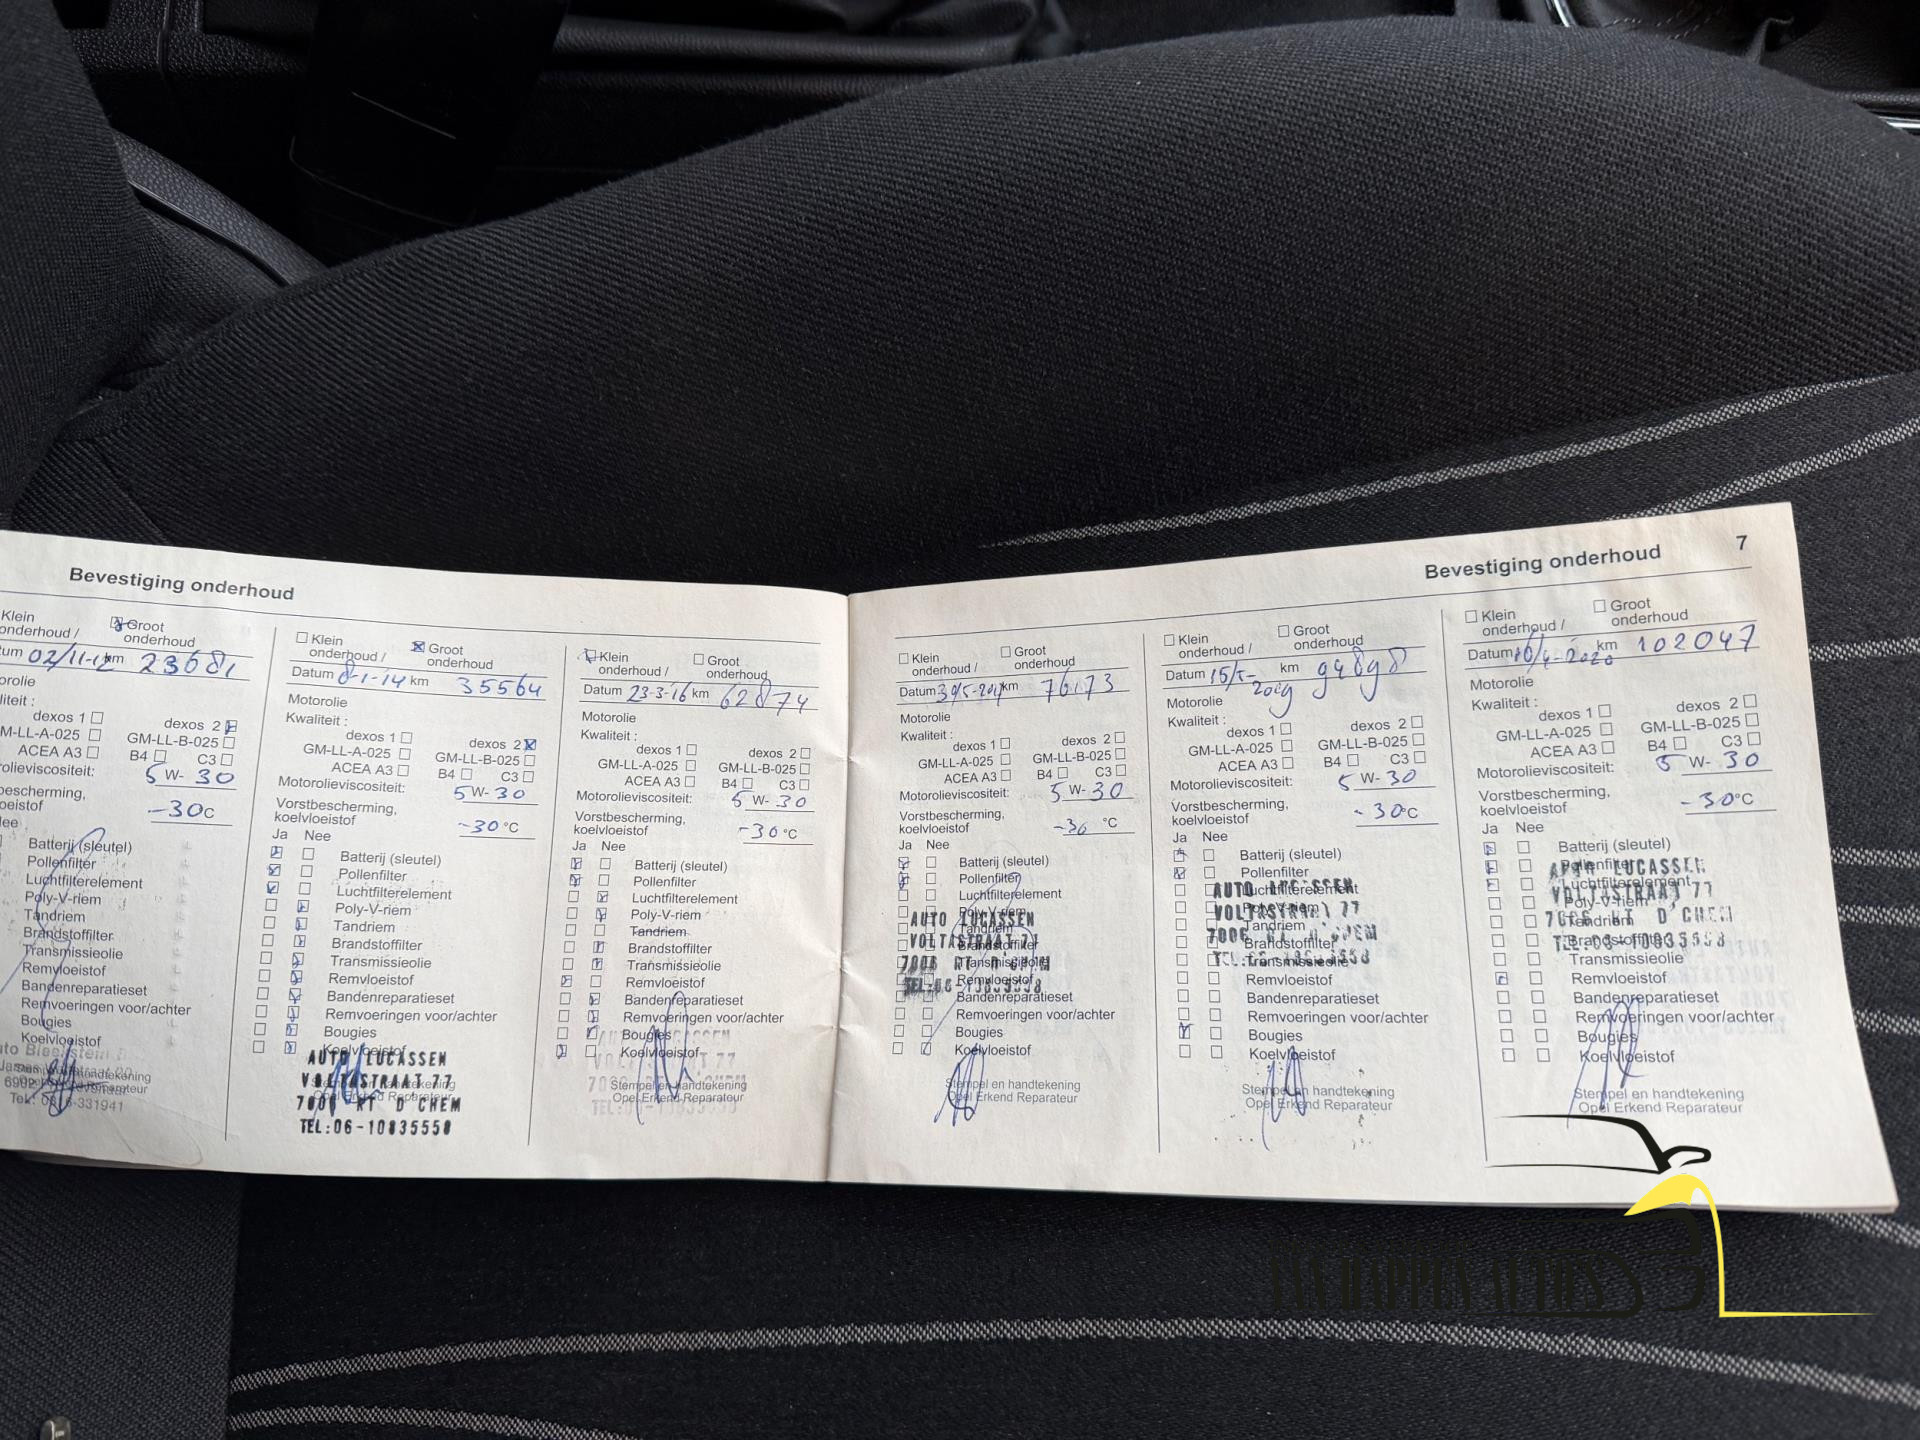 Bevestiging onderhoud
Klein
onderhoud /
Groot
onderhoud
tum 02/11-12 km 23681
orolie
liteit :
dexos 1 dexos 2
M-LL-A-025 GM-LL-B-025
ACEA A3 B4 C3
orolieviscositeit: 5 W- 30
bescherming,
oeistof -30°C
Nee
Batterij (sleutel)
Pollenfilter
Luchtfilterelement
Poly-V-riem
Tandriem
Brandstoffilter
Transmissieolie
Remvloeistof
Bandenreparatieset
Remvoeringen voor/achter
Bougies
Koelvloeistof
6902
Tel: 0316-331941
Klein
onderhoud /
Groot
onderhoud
Datum 8-1-14 km 35564
Motorolie
Kwaliteit :
dexos 1 dexos 2
GM-LL-A-025 GM-LL-B-025
ACEA A3 B4 C3
Motorolieviscositeit: 5 W- 30
Vorstbescherming,
koelvloeistof -30°C
Ja Nee
Batterij (sleutel)
Pollenfilter
Luchtfilterelement
Poly-V-riem
Tandriem
Brandstoffilter
Transmissieolie
Remvloeistof
Bandenreparatieset
Remvoeringen voor/achter
Bougies
Koelvloeistof
AUTO LUCASSEN
VOLTASTRAAT 77
7006 RT D'CHEM
TEL:06-10835558
Klein
onderhoud /
Groot
onderhoud
Datum 23-3-16 km 62874
Motorolie
Kwaliteit :
dexos 1 dexos 2
GM-LL-A-025 GM-LL-B-025
ACEA A3 B4 C3
Motorolieviscositeit: 5 W- 30
Vorstbescherming,
koelvloeistof -30°C
Ja Nee
Batterij (sleutel)
Pollenfilter
Luchtfilterelement
Poly-V-riem
Tandriem
Brandstoffilter
Transmissieolie
Remvloeistof
Bandenreparatieset
Remvoeringen voor/achter
Bougies
Koelvloeistof
Stempel en handtekening
Opel Erkend Reparateur
Bevestiging onderhoud 7
Klein
onderhoud /
Groot
onderhoud
Datum 30/5-2017 km 76173
Motorolie
Kwaliteit :
dexos 1 dexos 2
GM-LL-A-025 GM-LL-B-025
ACEA A3 B4 C3
Motorolieviscositeit: 5 W- 30
Vorstbescherming,
koelvloeistof -30 °C
Ja Nee
Batterij (sleutel)
Pollenfilter
Luchtfilterelement
Poly-V-riem
Tandriem
Brandstoffilter
Transmissieolie
Remvloeistof
Bandenreparatieset
Remvoeringen voor/achter
Bougies
Koelvloeistof
AUTO LUCASSEN
VOLTASTRAAT 77
7006 RT D'CHEM
TEL:06-10835558
Stempel en handtekening
Opel Erkend Reparateur
Klein
onderhoud /
Groot
onderhoud
Datum 15/5-2019 km 94898
Motorolie
Kwaliteit :
dexos 1 dexos 2
GM-LL-A-025 GM-LL-B-025
ACEA A3 B4 C3
Motorolieviscositeit: 5 W- 30
Vorstbescherming,
koelvloeistof -30°C
Ja Nee
Batterij (sleutel)
Pollenfilter
Luchtfilterelement
Poly-V-riem
Tandriem
Brandstoffilter
Transmissieolie
Remvloeistof
Bandenreparatieset
Remvoeringen voor/achter
Bougies
Koelvloeistof
AUTO LUCASSEN
VOLTASTRAAT 77
7006 RT D'CHEM
TEL:06-10835558
Stempel en handtekening
Opel Erkend Reparateur
Klein
onderhoud /
Groot
onderhoud
Datum 16/4-2020 km 102047
Motorolie
Kwaliteit :
dexos 1 dexos 2
GM-LL-A-025 GM-LL-B-025
ACEA A3 B4 C3
Motorolieviscositeit: 5 W- 30
Vorstbescherming,
koelvloeistof -30°C
Ja Nee
Batterij (sleutel)
Pollenfilter
Luchtfilterelement
Poly-V-riem
Tandriem
Brandstoffilter
Transmissieolie
Remvloeistof
Bandenreparatieset
Remvoeringen voor/achter
Bougies
Koelvloeistof
AUTO LUCASSEN
VOLTASTRAAT 77
7006 RT D'CHEM
TEL:06-10835558
Stempel en handtekening
Opel Erkend Reparateur